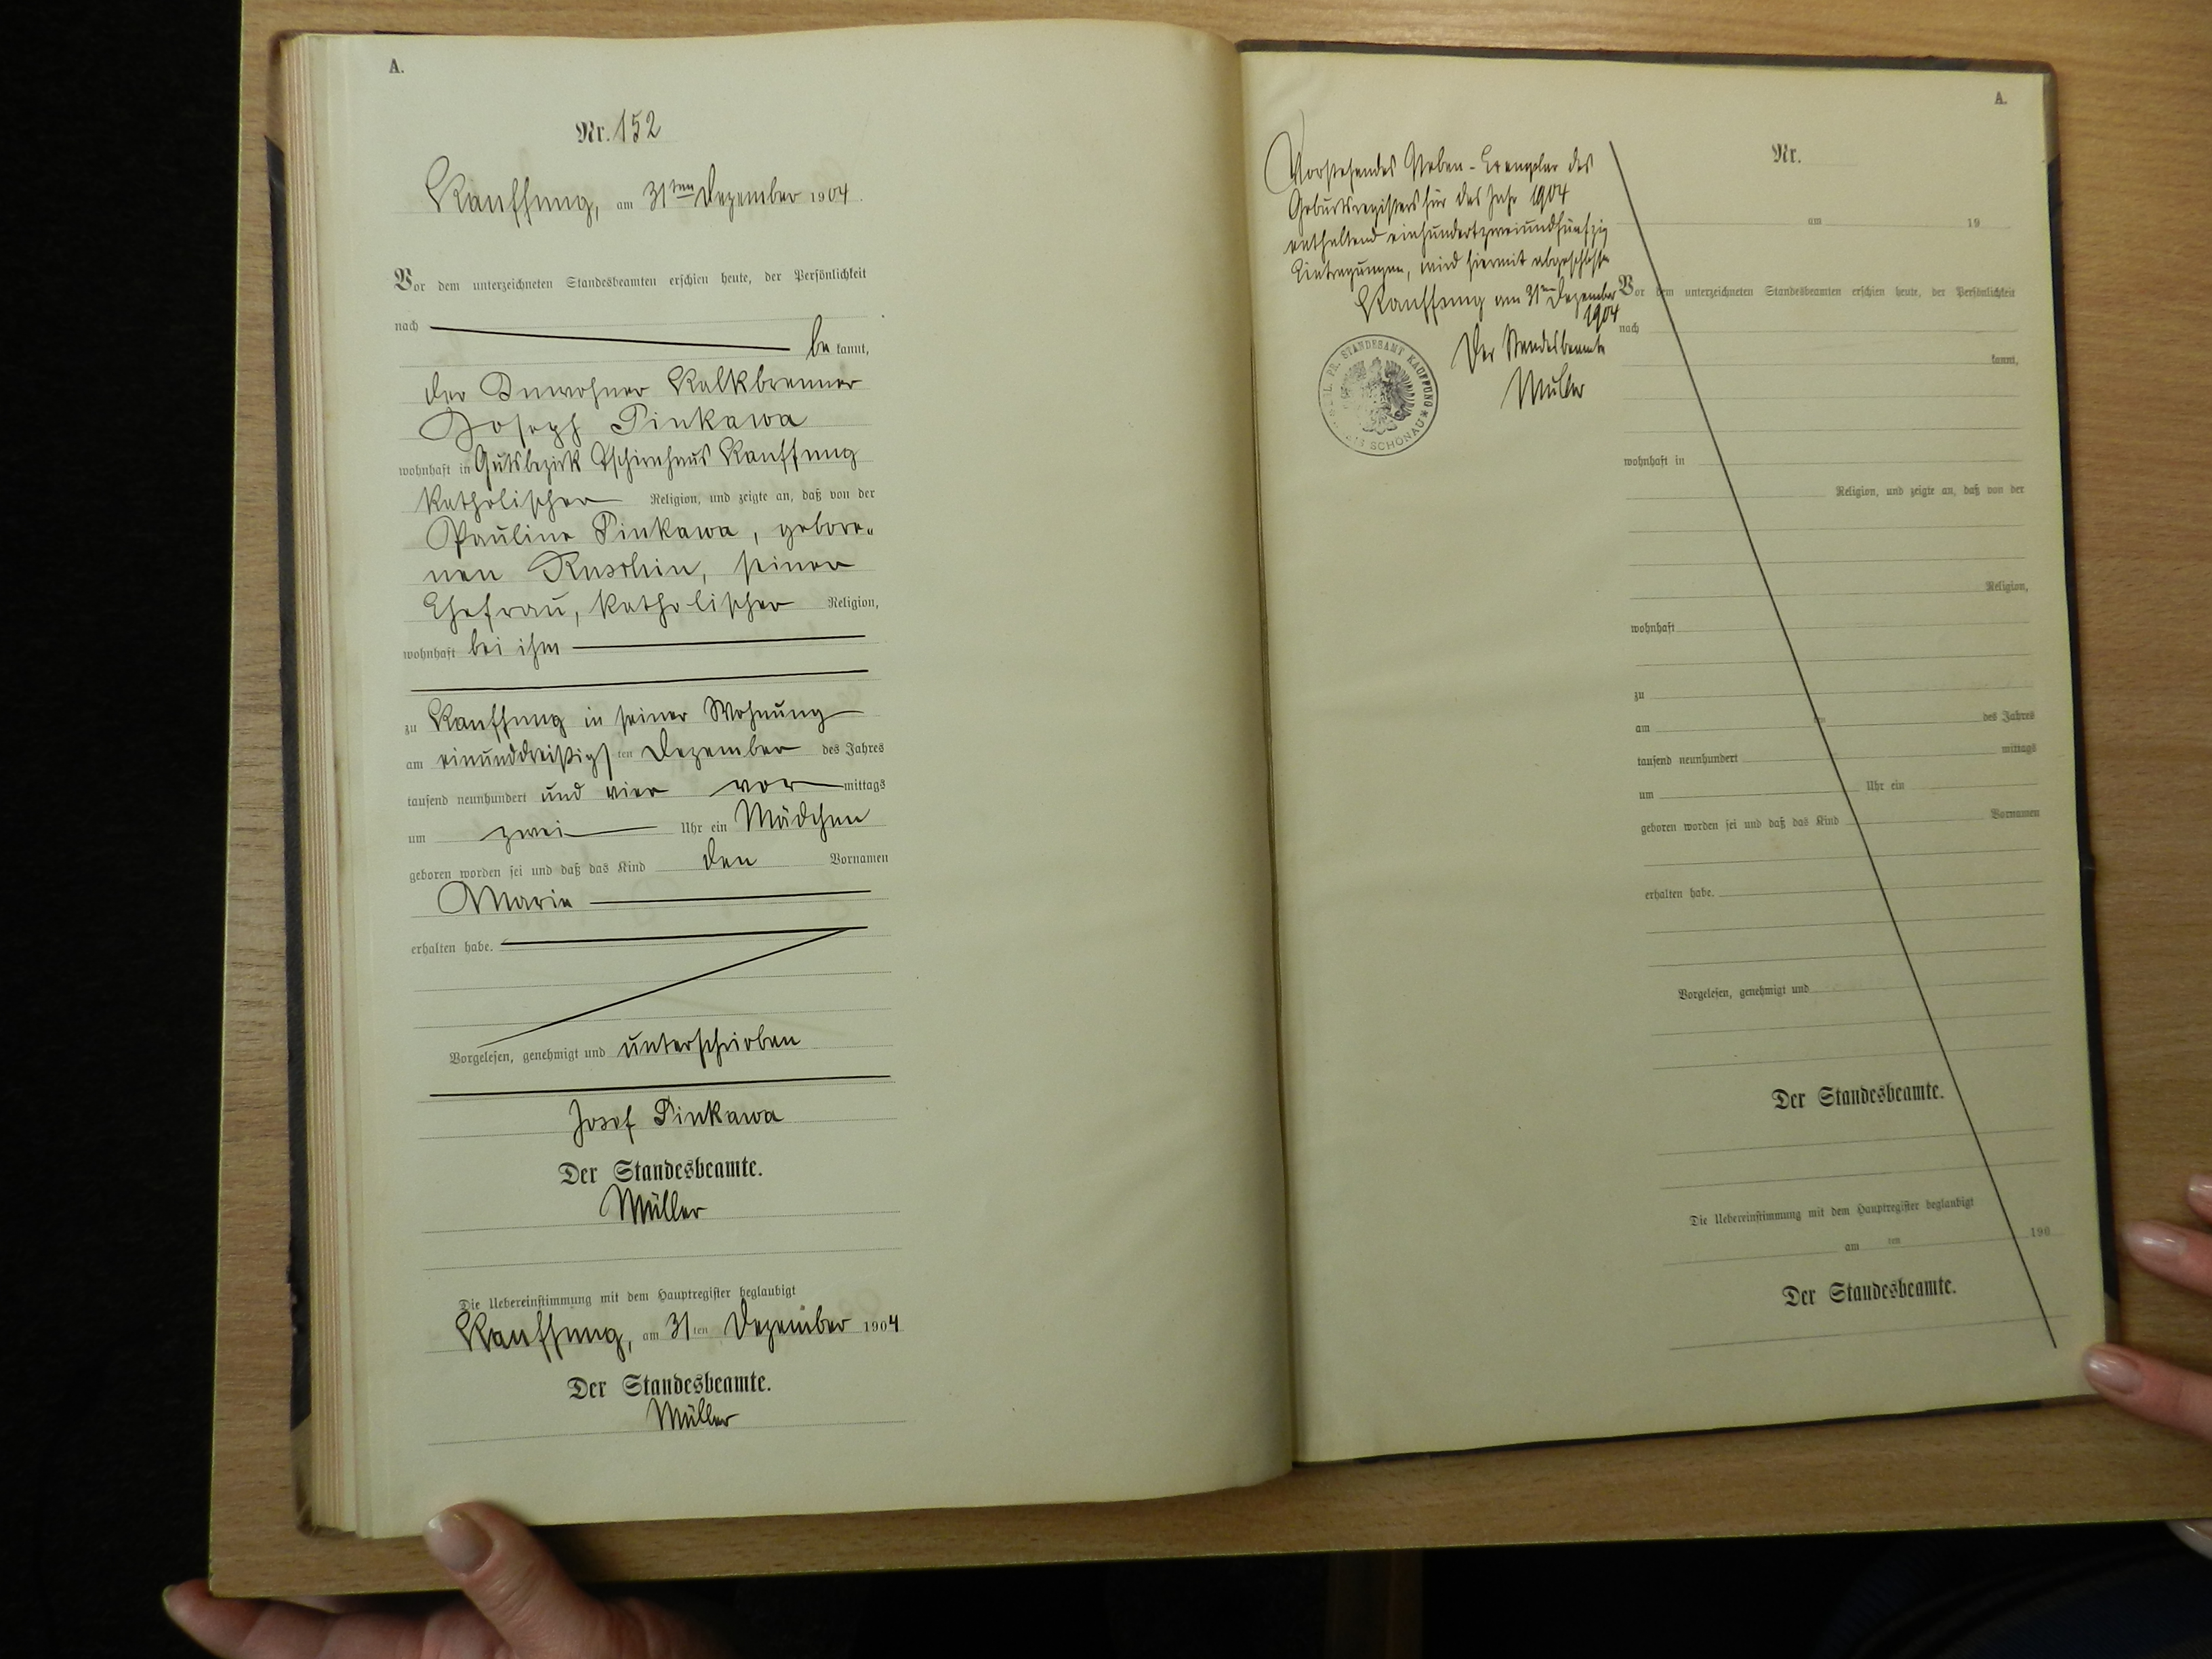 A.
Nr. 152
Kauffung, am 31ten Dezember 1904.
Vor dem unterzeichneten Standesbeamten erschien heute, der Persönlichkeit
nach be kannt,
der Inwohner Kalkbrenner
Joseph Pinkawa
wohnhaft in Gutsbezirk Tschirnhaus Kauffung
katholischer Religion, und zeigte an, daß von der
Pauline Pinkawa, gebore-
nen, seiner
Ehefrau, katholischer Religion,
wohnhaft bei ihm
zu Kauffung in seiner Wohnung
am einunddreißigsten Dezember des Jahres
tausend neunhundert und vier vormittags
um zwei Uhr ein Mädchen
geboren worden sei und daß das Kind den Vornamen
Marie
erhalten habe.
Vorgelesen, genehmigt und unterschrieben
Josef Pinkawa
Der Standesbeamte.
Müller
Die Uebereinstimmung mit dem Hauptregister beglaubigt
Kauffung, am 31ten Dezember 1904
Der Standesbeamte.
Müller
Vorstehendes Neben-Exemplar des
Geburtsregisters für das Jahr 1904
enthaltend einhundertzweiundfünfzig
Eintragungen, wird hiermit abgeschlossen
Kauffung am 31ten Dezember
1904
Der Standesbeamte
Müller
PR. STANDESAMT KAUFFUNG * SCHÖNAU *
A.
Nr.
am 19
Vor dem unterzeichneten Standesbeamten erschien heute, der Persönlichkeit
nach
kannt,
wohnhaft in
Religion, und zeigte an, daß von der
Religion,
wohnhaft
zu
am ten des Jahres
tausend neunhundert mittags
um Uhr ein
geboren worden sei und daß das Kind Vornamen
erhalten habe.
Vorgelesen, genehmigt und
Der Standesbeamte.
Die Uebereinstimmung mit dem Hauptregister beglaubigt
am ten 190
Der Standesbeamte.